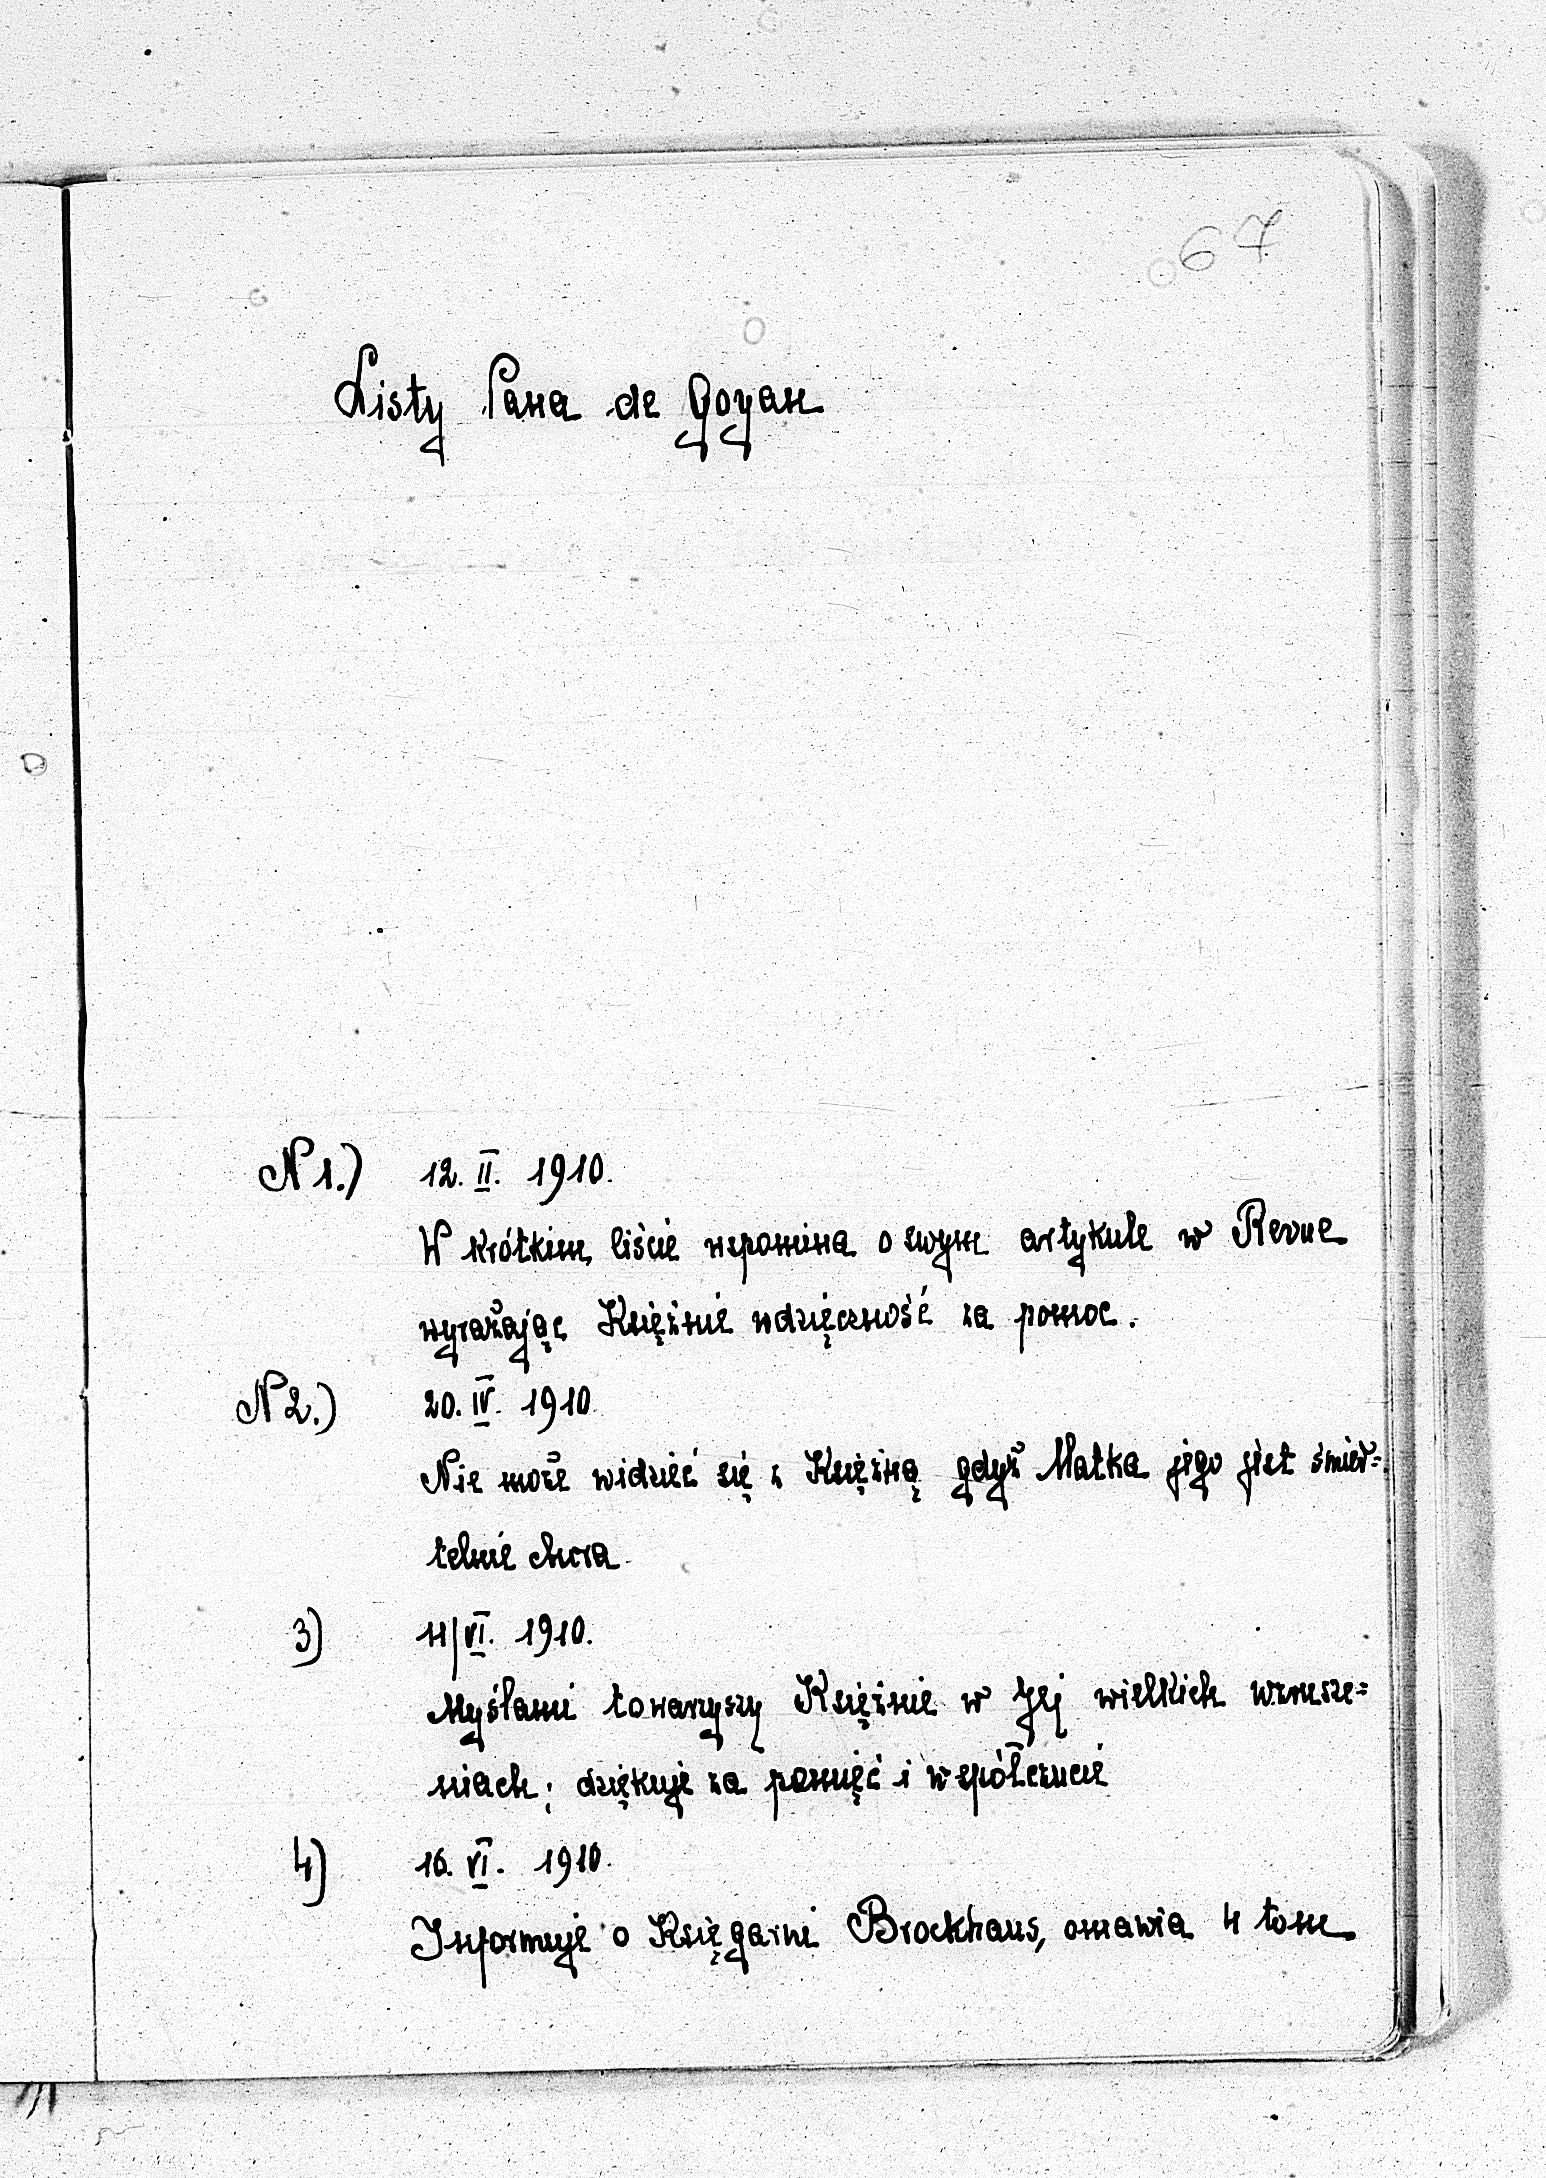 67
Listy Pana de Goyan
N 1.) 12. II. 1910.
W krótkim liście wspomina o swym artykule w Revue
wyrażając Księżnie wdzięczność za pomoc.
N 2.) 20. IV. 1910
Nie może widzieć się z Księżną gdyż Matka jego jest śmier=
telnie chora
3) 11/VI. 1910.
Myślami towarzyszy Księżnie w Jej wielkich wzrusze=
niach; dziękuje za pamięć i współczucie
4) 16. VI. 1910.
Informuje o Księgarni Brockhaus, omawia 4 tom